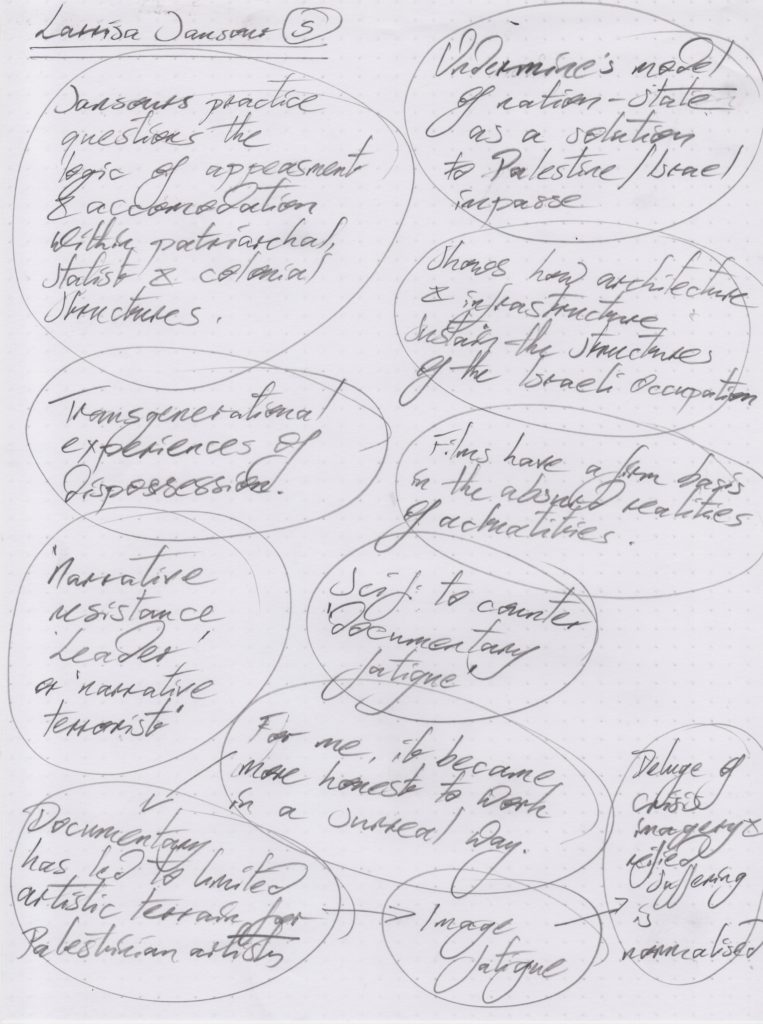 Larrisa Jansour 5
Jansours practice
questions the
logic of appeasment
& accomodation
within patriarchal,
statist & colonial
structures.
Undermine's model
of nation-state
as a solution
to Palestine/Israel
impasse
Shows how architecture
& infrastructure
sustain the structures
of the Israeli Occupation
Transgenerational
experiences of
dispossession.
Films have a firm basis
in the absurd realities
of actualities.
'Narrative
resistance
leader'
or 'narrative
terrorist'
Sci fi to counter
'Documentary
fatigue'
For me, it became
more honest to work
in a surreal way.
Documentary
has led to limited
artistic terrain for
Palestinian artists
Image
fatigue
Deluge of
crisis
imagery &
reified
suffering
is
normalised